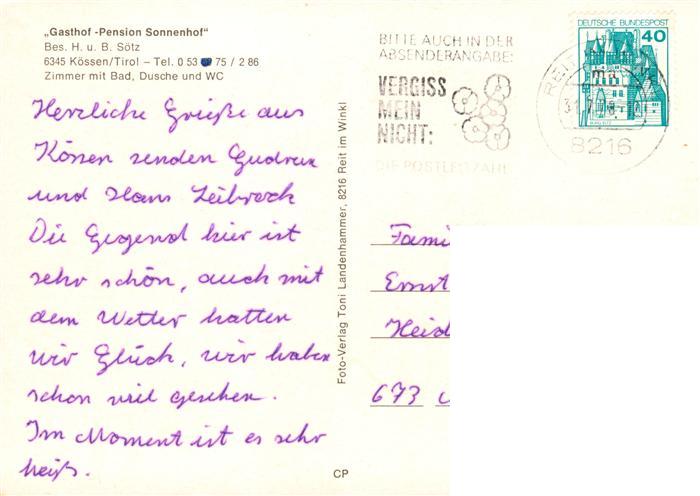 „Gasthof -Pension Sonnenhof“
Bes. H. u. B. Sötz
6345 Kössen/Tirol – Tel. 0 53 75 / 2 86
Zimmer mit Bad, Dusche und WC
Herzliche Grüße aus
Kössen senden Gudrun
und Hans Leibrock
Die Gegend hier ist
sehr schön, auch mit
dem Wetter hatten
wir Glück, wir haben
schon viel gesehen.
Im Moment ist es sehr
heiß.
Foto-Verlag Toni Landenhammer, 8216 Reit im Winkl
CP
BITTE AUCH IN DER
ABSENDERANGABE:
VERGISS
MEIN
NICHT:
DIE POSTLEITZAHL
DEUTSCHE BUNDESPOST
40
REIT
8216
Fami
Ernst
Heid
673